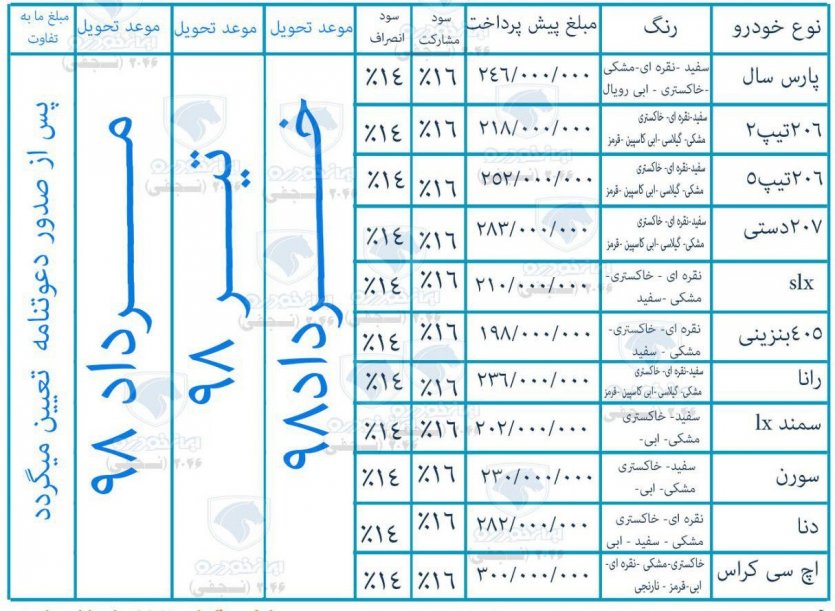 نوع خودرو	رنگ	مبلغ پیش پرداخت	سود مشارکت	سود انصراف	موعد تحویل	موعد تحویل	موعد تحویل	مبلغ ما به تفاوت
پارس سال	سفید -نقره ای-مشکی -خاکستری - ابی رویال	۲٤٦/۰۰۰/۰۰۰	٪۱٦	٪۱٤
۲۰٦تیپ۲	سفید-نقره ای- خاکستری مشکی- گیلاسی -ابی کاسپین -قرمز	۲۱۸/۰۰۰/۰۰۰	٪۱٦	٪۱٤
۲۰٦تیپ٥	سفید-نقره ای- خاکستری مشکی- گیلاسی -ابی کاسپین -قرمز	۲٥۲/۰۰۰/۰۰۰	٪۱٦	٪۱٤
۲۰۷دستی	سفید-نقره ای- خاکستری مشکی- گیلاسی -ابی کاسپین -قرمز	۲۸۳/۰۰۰/۰۰۰	٪۱٦	٪۱٤
slx	نقره ای - خاکستری- مشکی -سفید	۲۱۰/۰۰۰/۰۰۰	٪۱٦	٪۱٤
٤۰٥بنزینی	نقره ای- خاکستری- مشکی - سفید	۱۹۸/۰۰۰/۰۰۰	٪۱٦	٪۱٤
رانا	سفید-نقره ای- خاکستری مشکی- گیلاسی -ابی کاسپین -قرمز	۲۳٦/۰۰۰/۰۰۰	٪۱٦	٪۱٤
سمند lx	سفید- خاکستری مشکی- ابی-	۲۰۲/۰۰۰/۰۰۰	٪۱٦	٪۱٤
سورن	سفید- خاکستری مشکی- ابی-	۲۳۰/۰۰۰/۰۰۰	٪۱٦	٪۱٤
دنا	نقره ای- خاکستری مشکی - سفید - ابی	۲۸۲/۰۰۰/۰۰۰	٪۱٦	٪۱٤
اچ سی کراس	خاکستری-مشکی -نقره ای- ابی-قرمز - نارنجی	۳۰۰/۰۰۰/۰۰۰	٪۱٦	٪۱٤
خرداد۹۸
تیر ۹۸
مرداد ۹۸
پس از صدور دعوتنامه تعیین میگردد
ایران‌خودرو
۲۰۴۶ (نجفی)